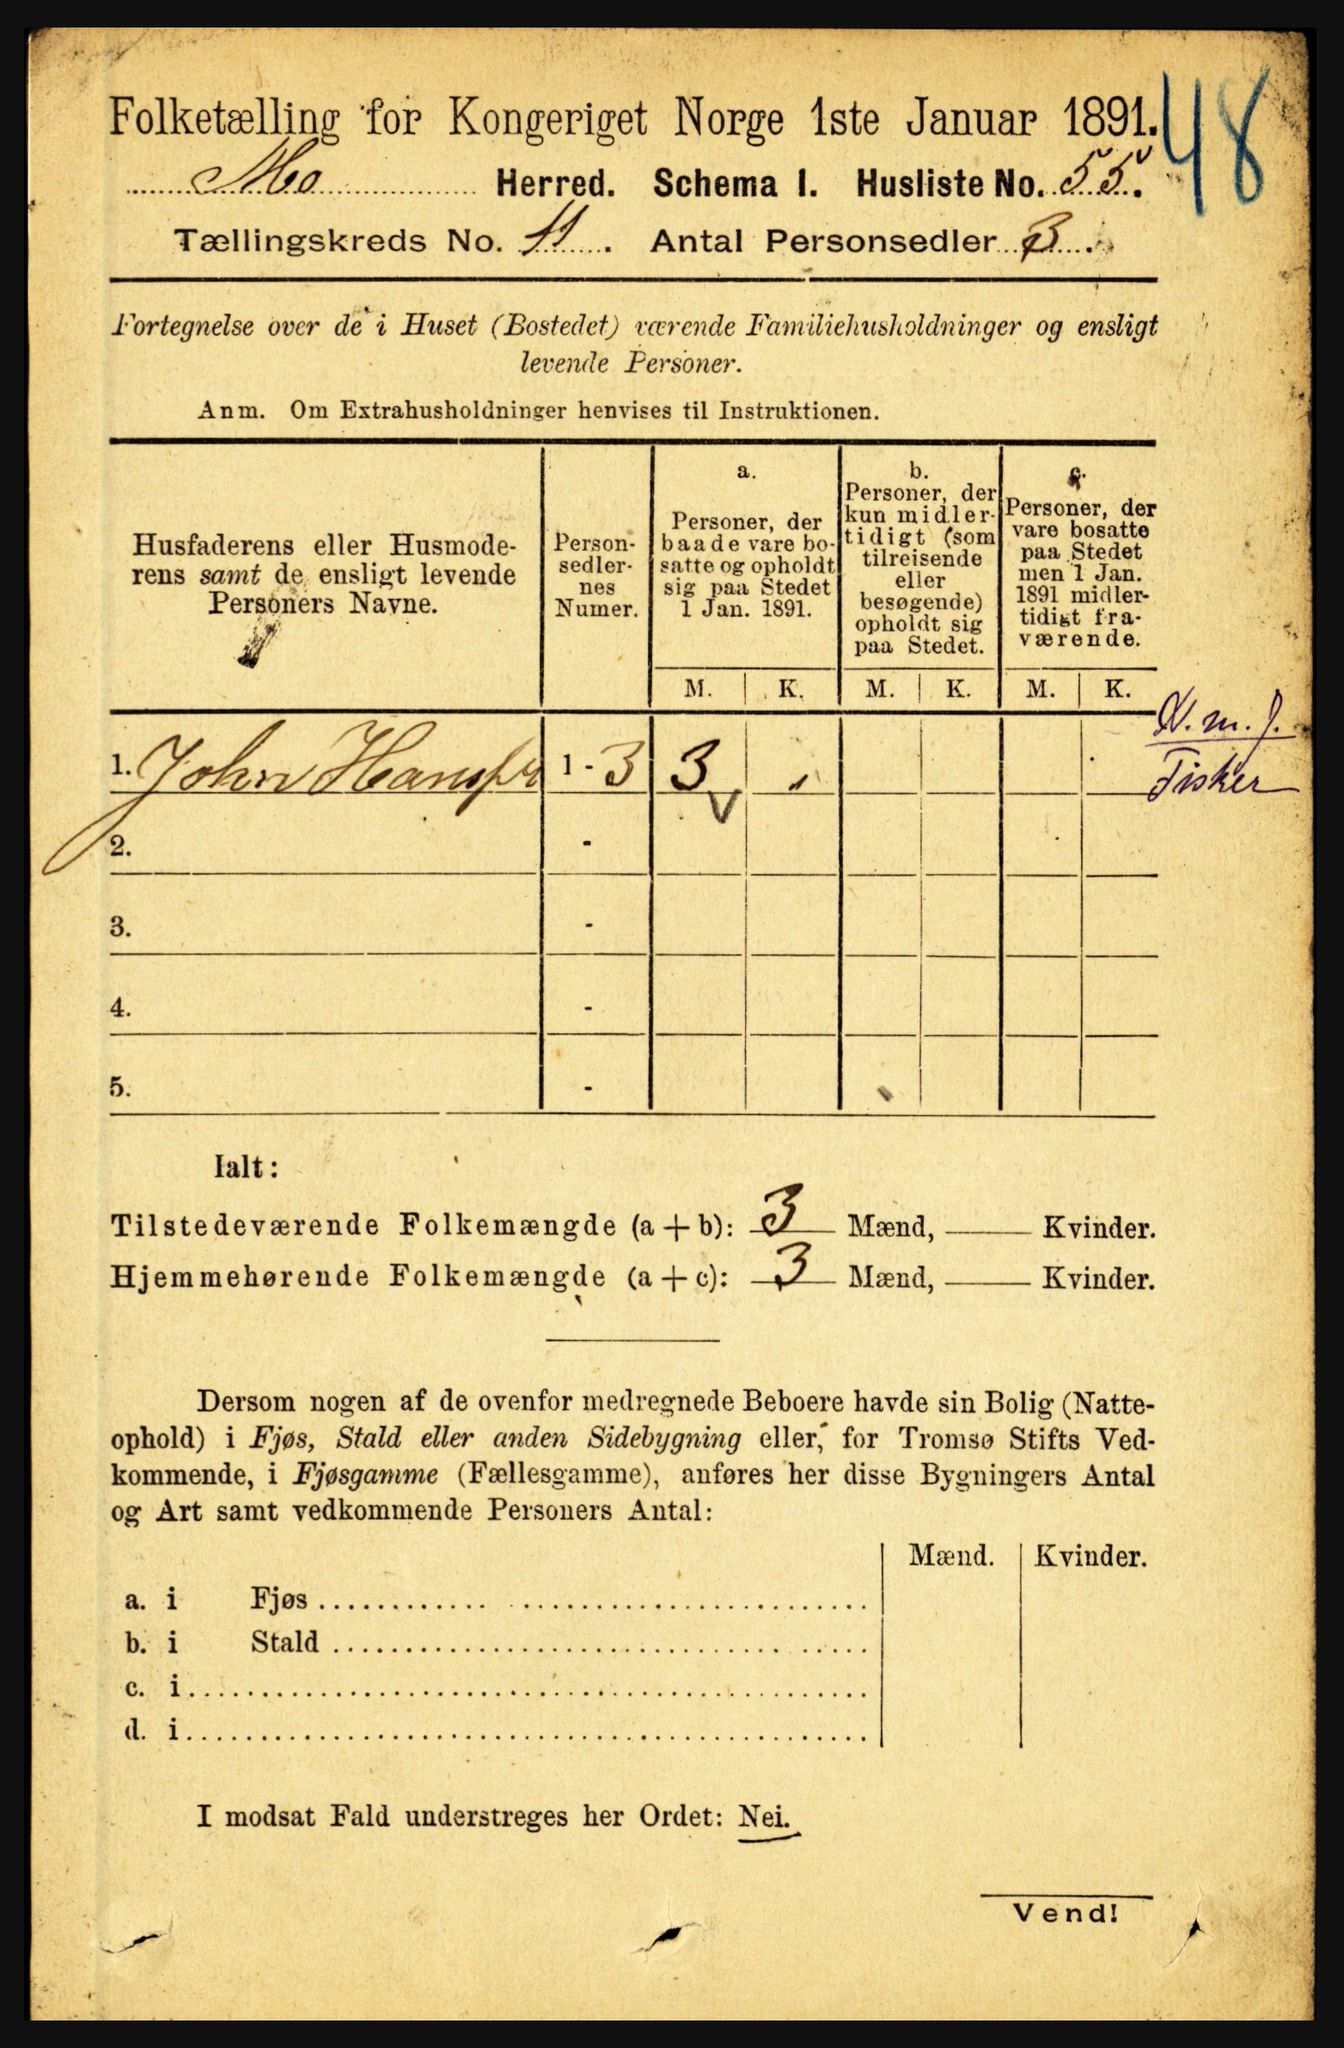 Folketælling for Kongeriget Norge 1ste Januar 1891.
48
Mo Herred. Schema I. Husliste No. 55.
Tællingskreds No. 11. Antal Personsedler 3.
Fortegnelse over de i Huset (Bostedet) værende Familiehusholdninger og ensligt
levende Personer.
Anm. Om Extrahusholdninger henvises til Instruktionen.
Husfaderens eller Husmode-
rens samt de ensligt levende
Personers Navne.
Person-
sedler-
nes
Numer.
a.
Personer, der
baade vare bo-
satte og opholdt
sig paa Stedet
1 Jan. 1891.
b.
Personer, der
kun midler-
tidigt (som
tilreisende
eller
besøgende)
opholdt sig
paa Stedet.
c.
Personer, der
vare bosatte
paa Stedet
men 1 Jan.
1891 midler-
tidigt fra-
værende.
M. K. M. K. M. K.
1. John 1 - 3 3
Fisker
2. -
3. -
4. -
5. -
Ialt:
Tilstedeværende Folkemængde (a + b): 3 Mænd, Kvinder.
Hjemmehørende Folkemængde (a + c): 3 Mænd, Kvinder.
Dersom nogen af de ovenfor medregnede Beboere havde sin Bolig (Natte-
ophold) i Fjøs, Stald eller anden Sidebygning eller, for Tromsø Stifts Ved-
kommende, i Fjøsgamme (Fællesgamme), anføres her disse Bygningers Antal
og Art samt vedkommende Personers Antal:
Mænd. Kvinder.
a. i Fjøs
b. i Stald
c. i
d. i
I modsat Fald understreges her Ordet: Nei.
Vend!